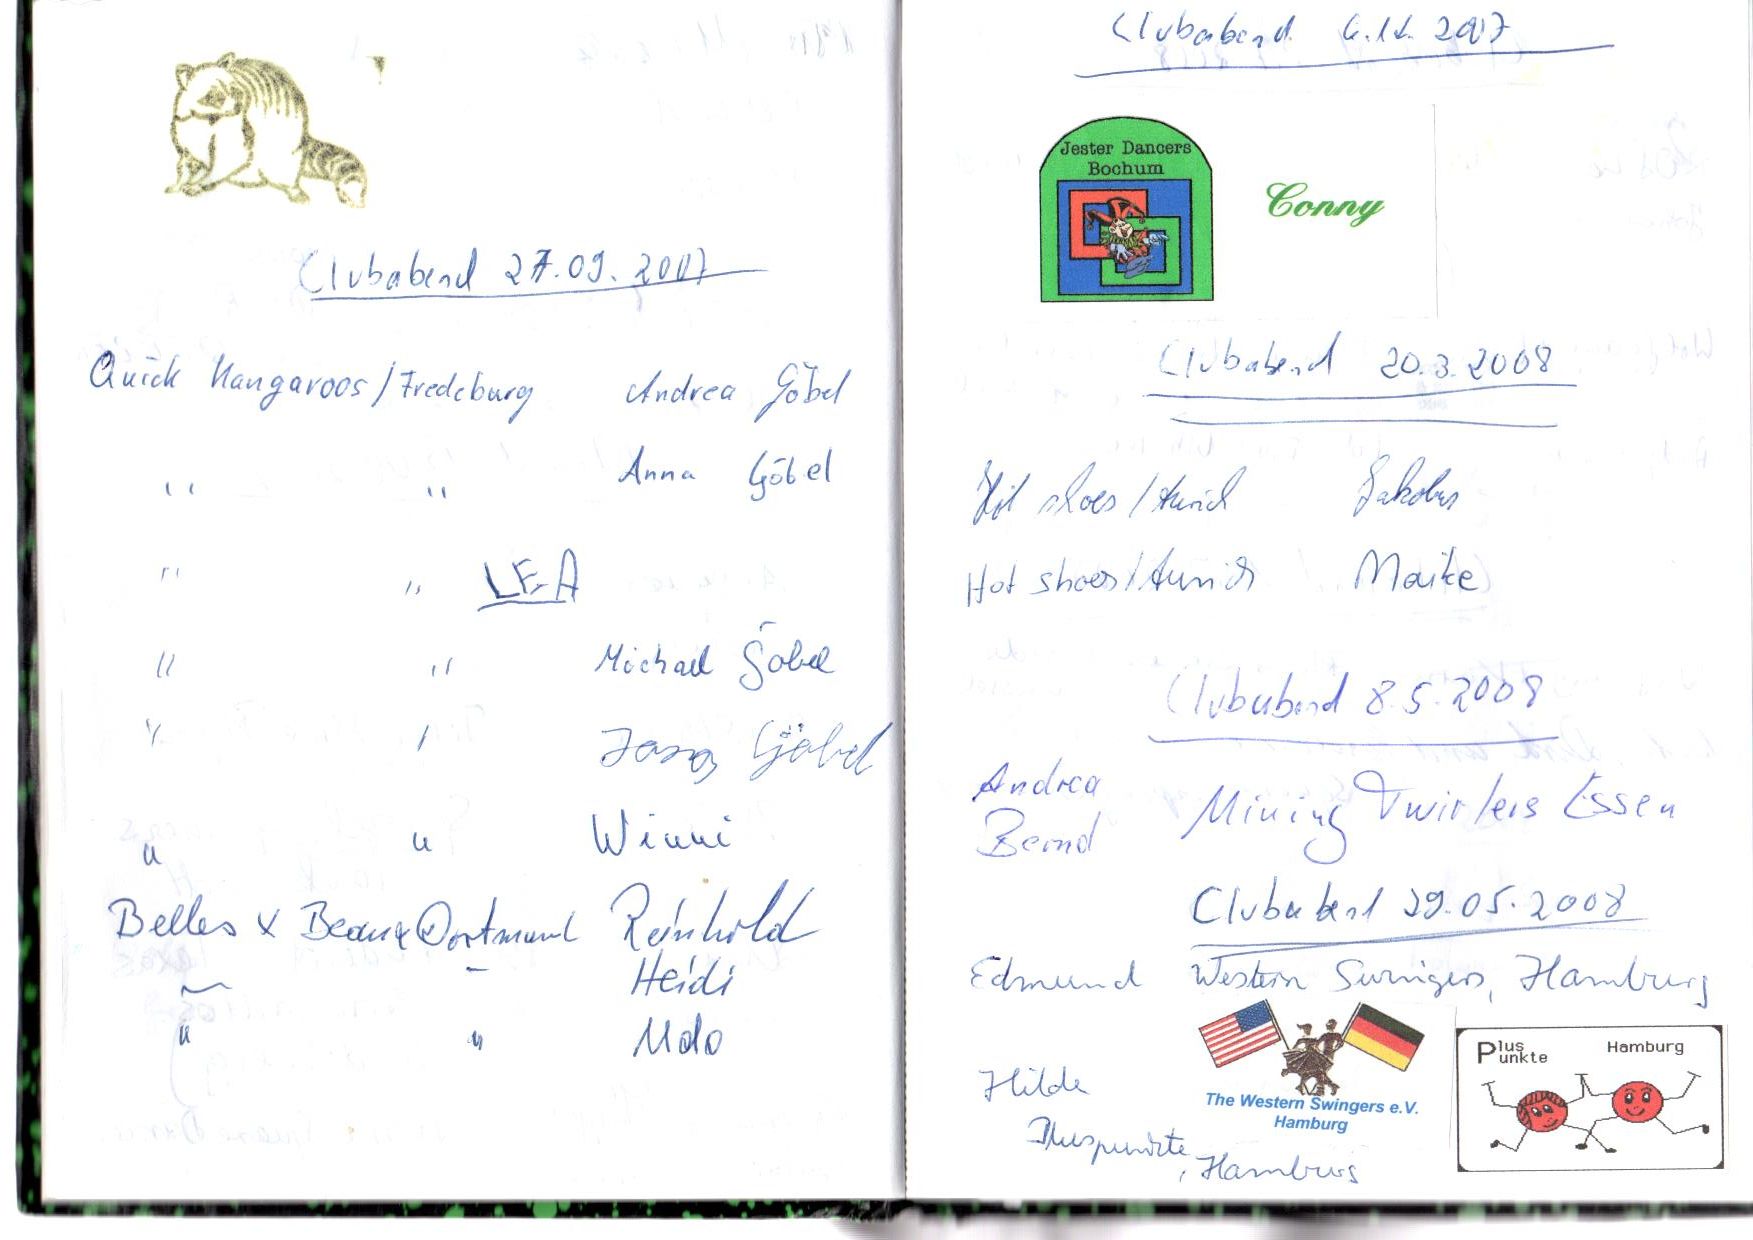 Clubabend 27.09.2007
Quick Kangaroos / Fredeburg Andrea Göbel
" " Anna Göbel
" " LEA
" " Michael Göbel
" " Göbel
" " Winni
Belles & Beaux Dortmund Reinhold
" Heidi
" " Udo
Clubabend 6.12.2007
Jester Dancers
Bochum
Conny
Clubabend 20.3.2008
Hot shoes / Aurich Jakobus
Hot shoes / Aurich Maike
Clubabend 8.5.2008
Andrea
Bernd
Mining Twirlers Essen
Clubabend 29.05.2008
Edmund Western Swingers, Hamburg
The Western Swingers e.V.
Hamburg
Plus
Punkte
Hamburg
Hilde
Pluspunkte
, Hamburg